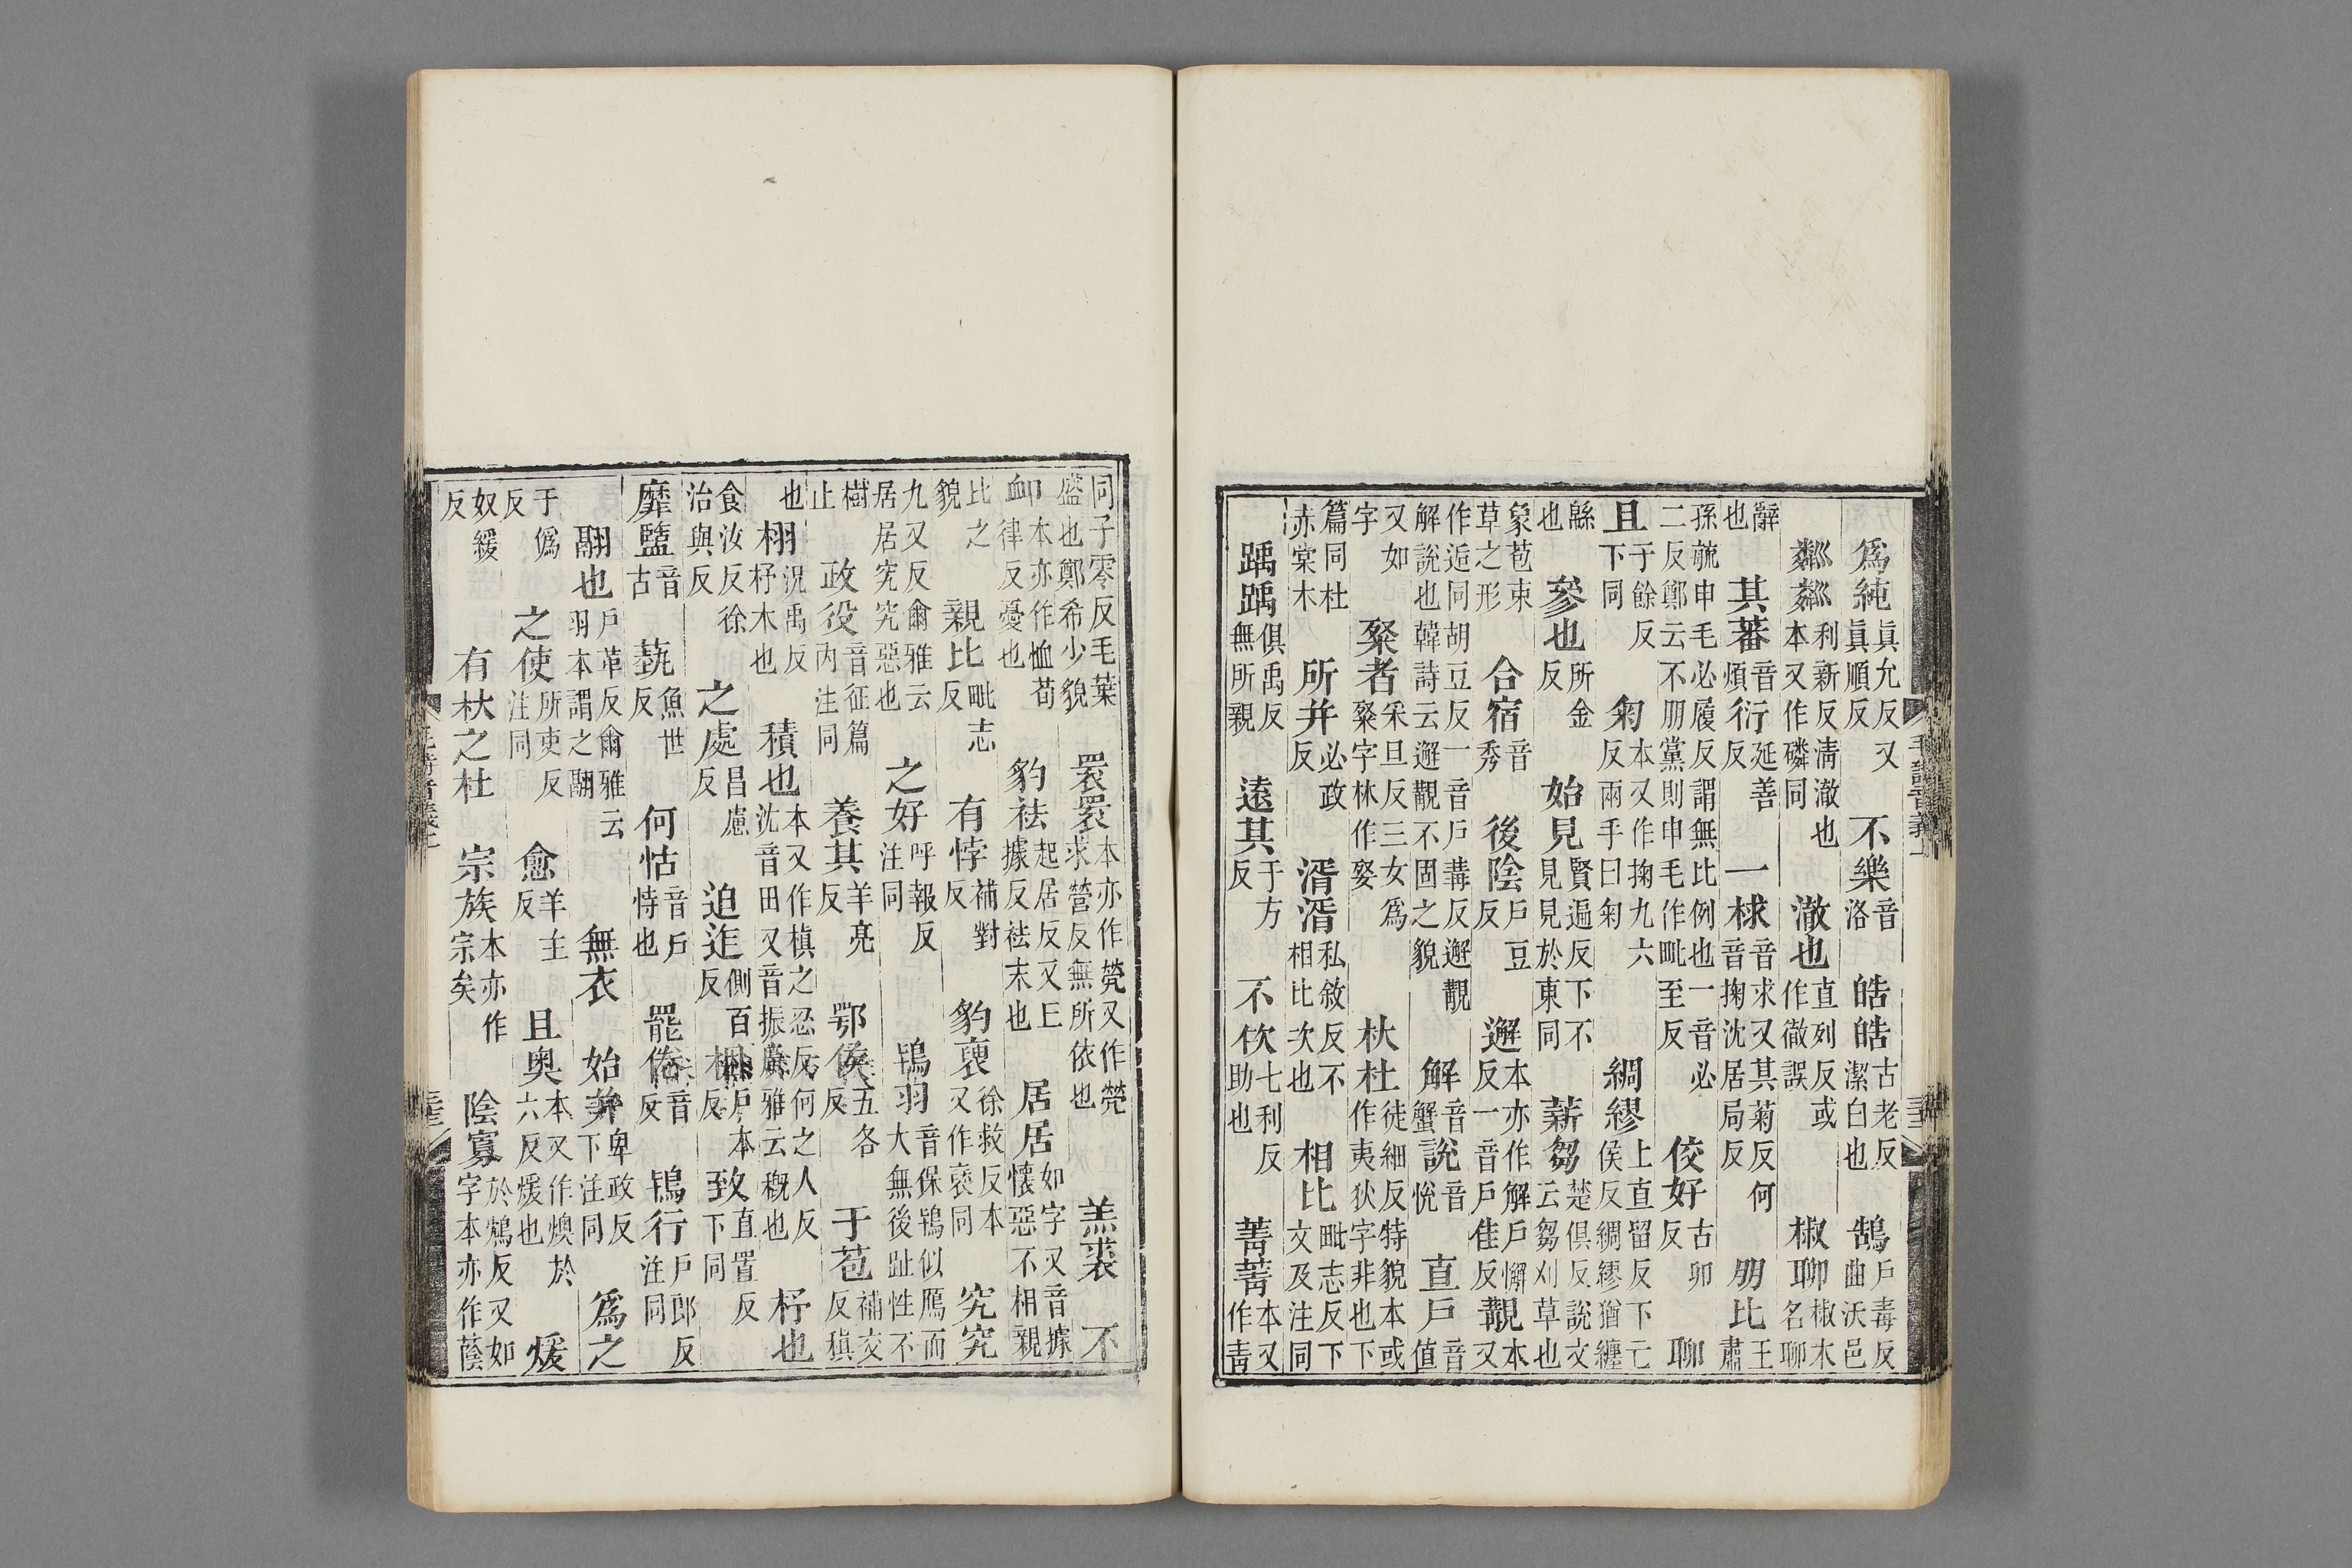 爲純眞允反又眞順反不樂音洛皓皓古老反潔白也鵠戶毒反曲沃邑
粼粼利新反淸澈也本又作磷同澈也直列反或作徹誤椒聊椒木名聊
辭也其蕃音煩衍延善反一梂音求又其菊反何音掬沈居局反朋比王肅
孫毓申毛必履反謂無比例也一音必二反鄭云不朋黨則申毛作毗至反佼好古卯反聊
且于餘反下同匊本又作掬九六反兩手曰匊綢繆上直留反下亡侯反綢繆猶纏
緜也參也所金反始見賢遍反下不見見於東同薪芻楚俱反說文云芻刈草也
象苞束草之形合宿音秀後陰戶豆反邂本亦作解戶懈反一音戶佳反覯本又
作逅同胡豆反一音戶冓反邂覯解說也韓詩云邂覯不固之貌解音蟹說音悅直戶音值
又如字粲者采旦反三女爲粲字林作㛑杕杜徒細反特貌本或作夷狄字非也下
篇同杜赤棠木所并必政反湑湑私敘反不相比次也相比毗志反下文及注同
踽踽俱禹反無所親遠其于方反不佽七利反助也菁菁本又作靑
毛詩音義上
同子零反毛葉盛也鄭希少貌睘睘本亦作煢又作㷀求營反無所依也羔裘不
卹本亦作恤荀律反憂也豹袪起居反又丘據反袪末也居居如字又音據懷惡不相親
比之貌親比毗志反有悖補對反豹褎徐救反本又作褏同究究
九又反爾雅云居居究究惡也之好呼報反注同鴇羽音保鴇似鴈而大無後趾性不
樹止政役音征篇內注同養其羊亮反鄂侯五各反于苞補交反稹
也栩況禹反杼木也積也本又作槙之忍反何之人反沈音田又音振廣雅云穊也杼也
食汝反徐治與反之處昌慮反迫迮側百反梱戶本反致直置反下同
靡盬音古蓺魚世反何怙音戶恃也罷倦音反鴇行戶郎反注同
翮也戶革反爾雅云羽本謂之翮無衣始并卑政反下注同爲之
于僞反之使所吏反注同愈羊主反且奧本又作燠於六反煖也煖
奴緩反有杕之杜宗族本亦作宗矣陰寡於鴆反又如字本亦作蔭